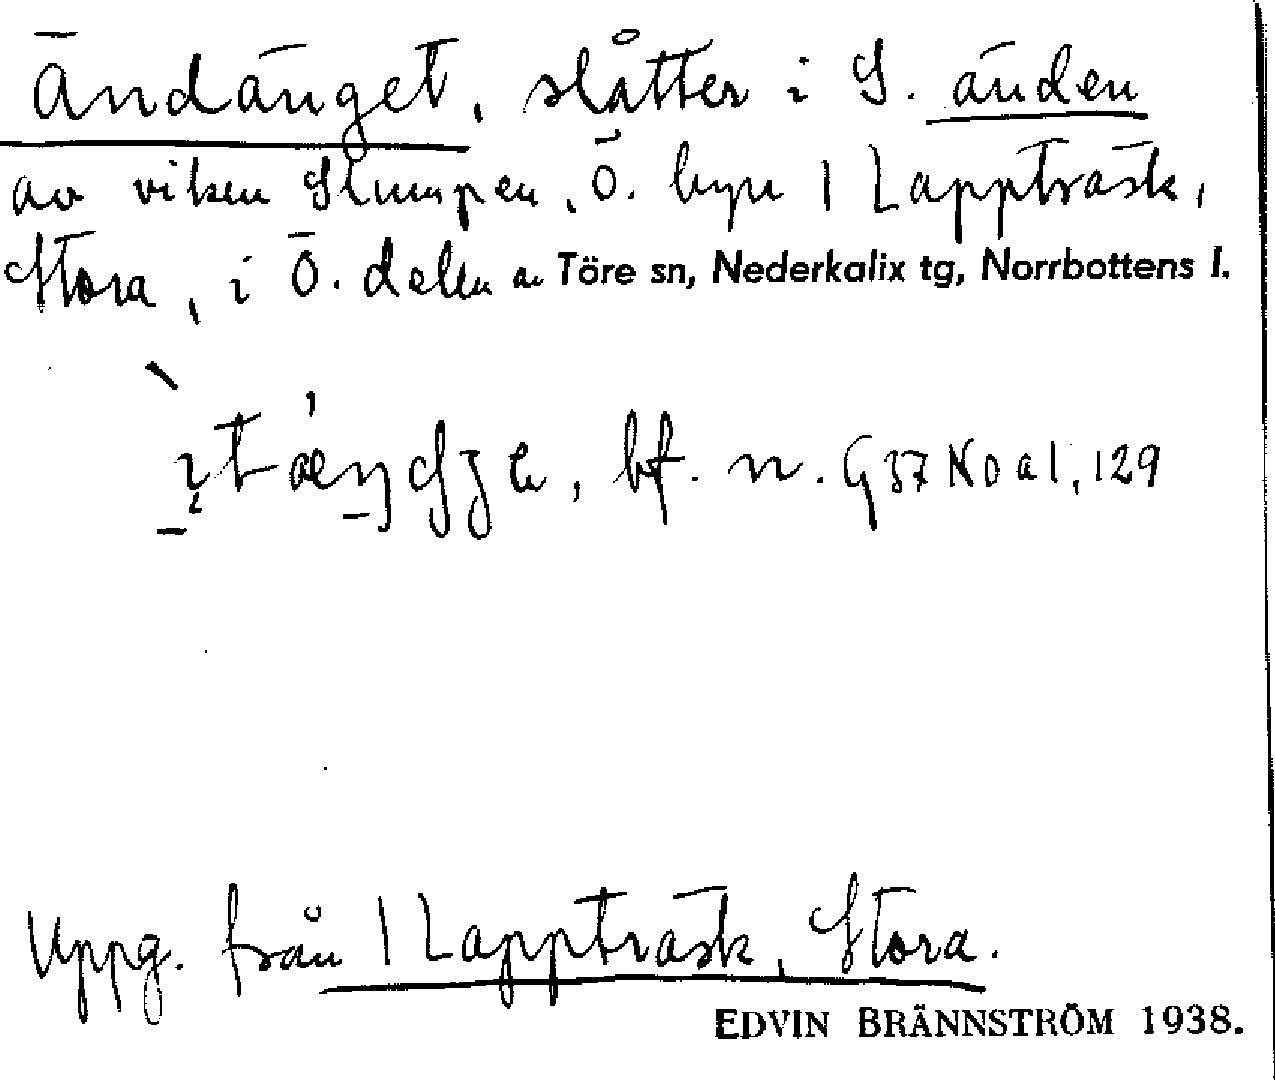 Ändänget, slåtter i S. änden
av viken Slumpen, Ö. byn 1 Lappträsk,
Stora, i Ö. delen av Töre sn, Nederkalix tg, Norrbottens l.
bf. n. G 37 No a 1, 129
Uppg. från 1 Lappträsk, Stora.
EDVIN BRÄNNSTRÖM 1938.